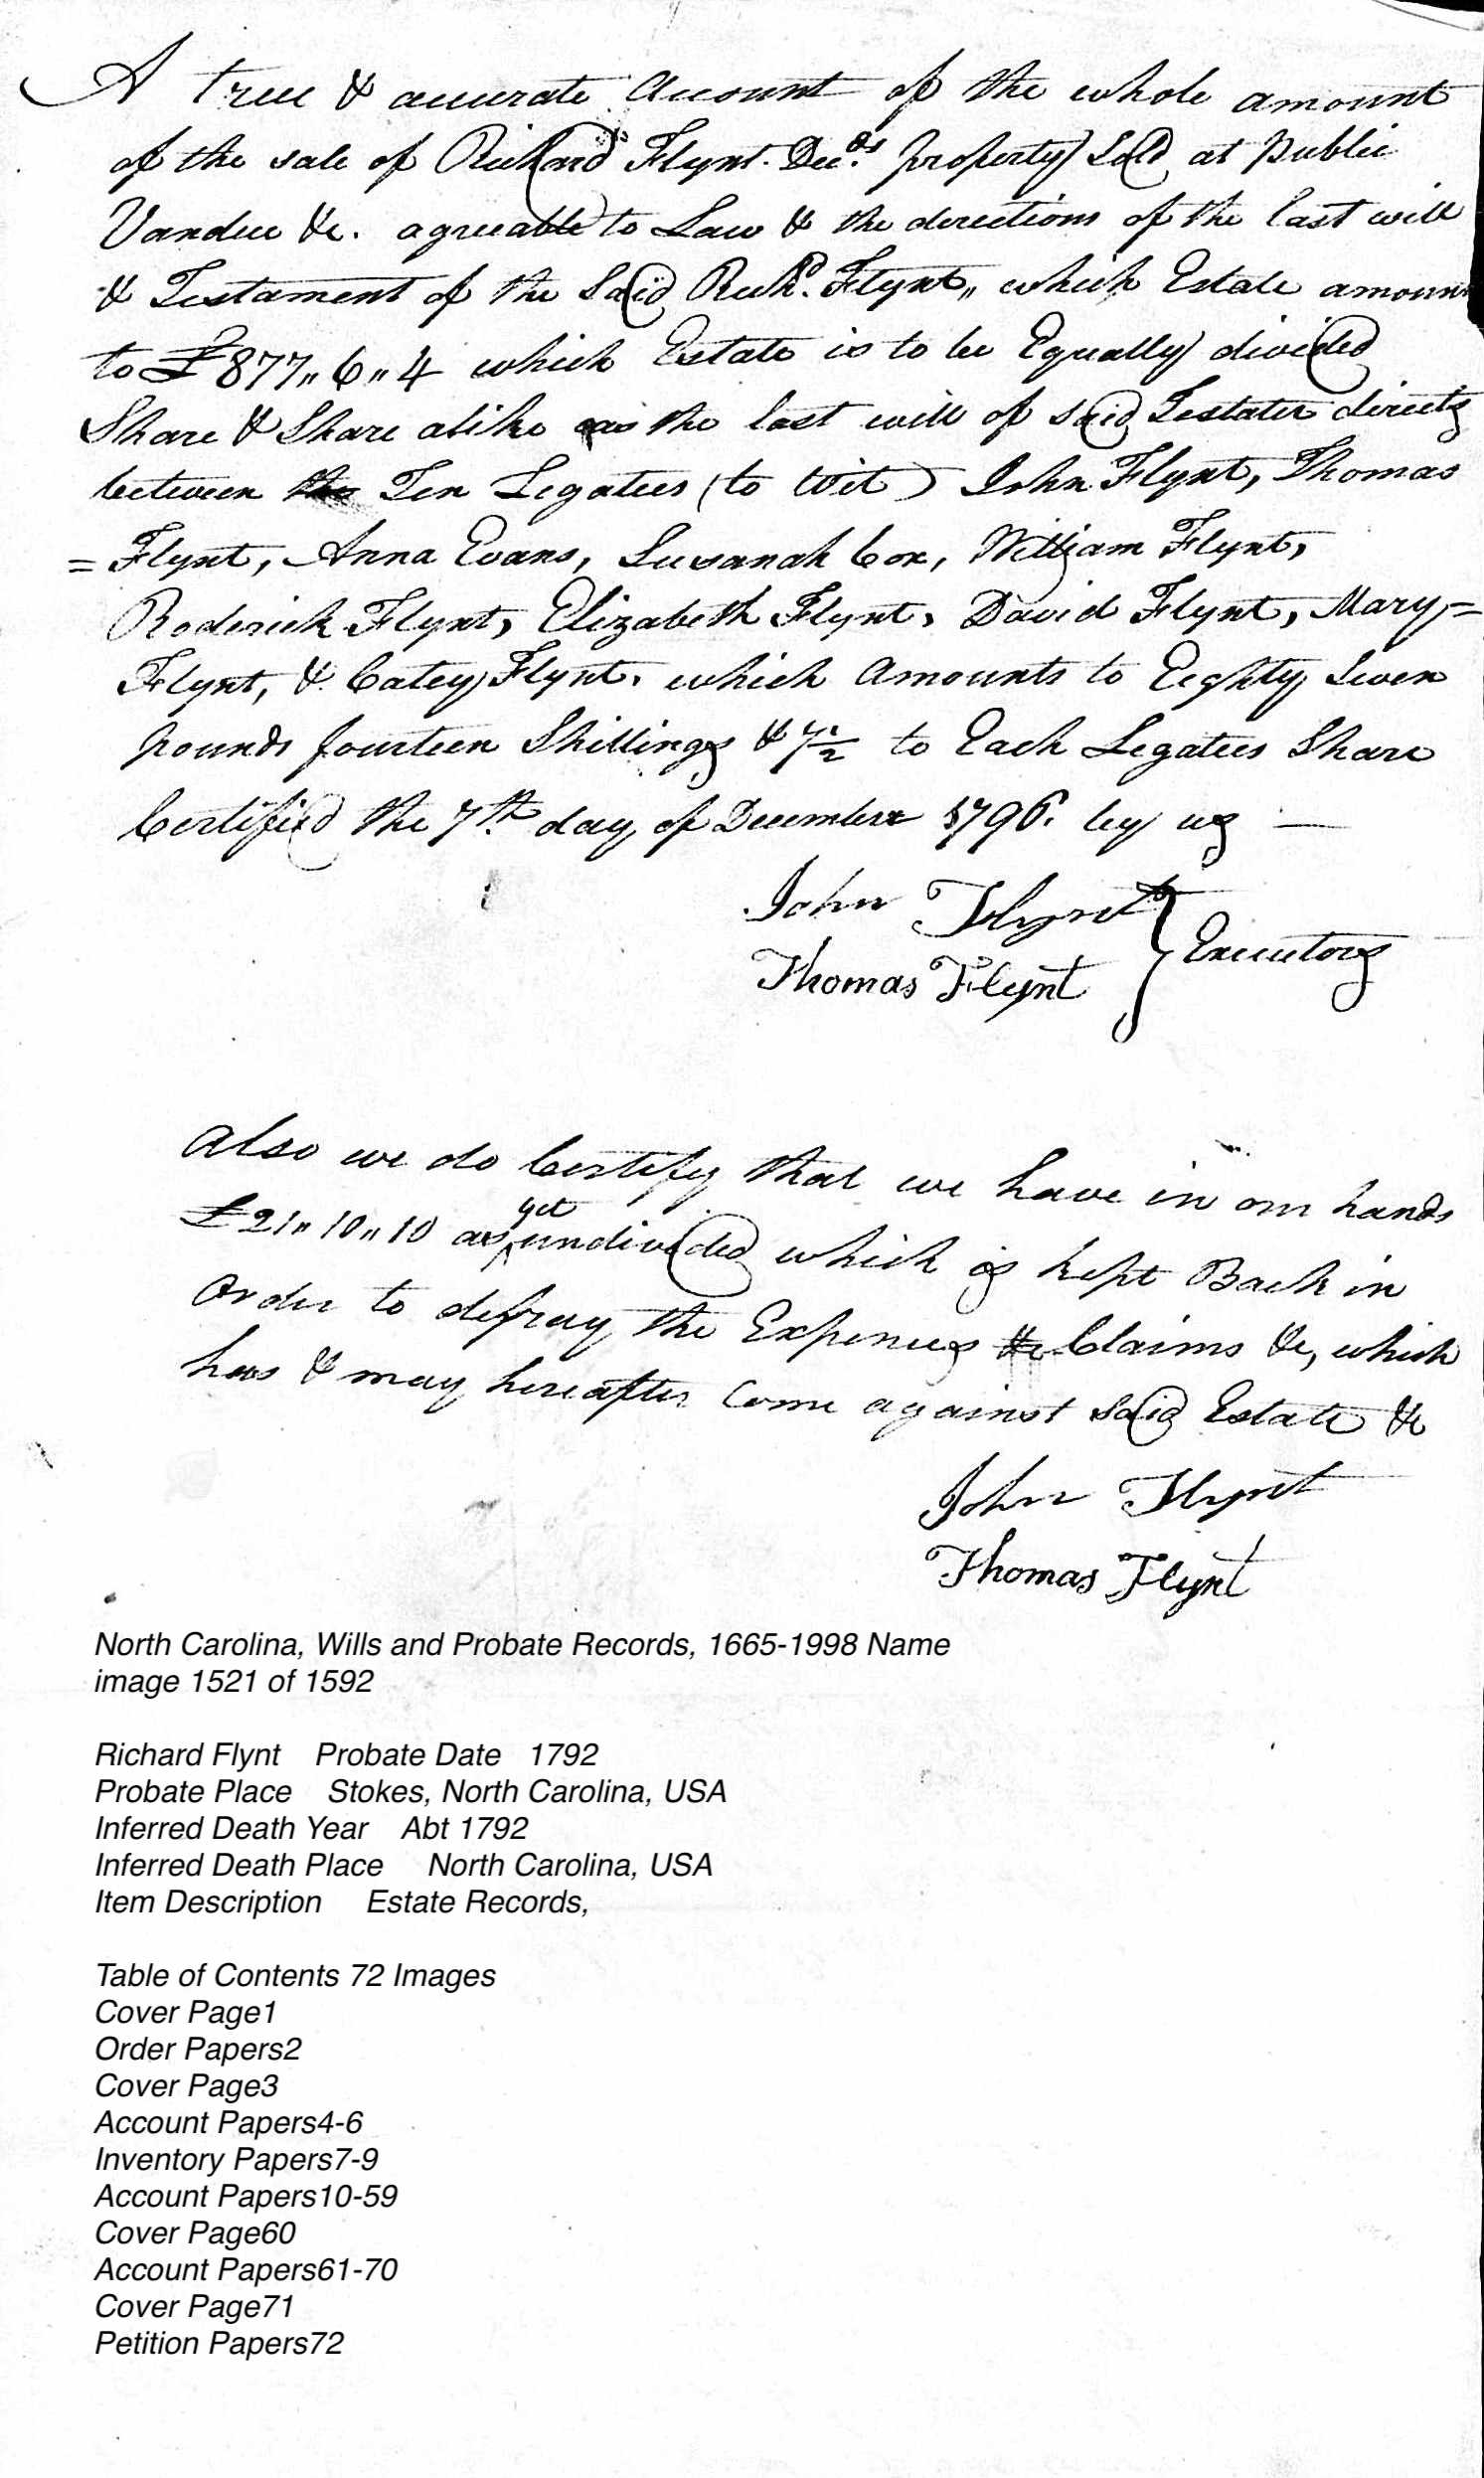 A true & accurate Account of the whole amount
of the sale of Richard Flynt. Decds property Sold at public
Vandue &c. agreeable to Law & the directions of the last will
& Testament of the Said Richd. Flynt,, which Estate amount
to £877,,6,,4 which Estate is to be Equally divided
Share & Share alike as the last will of said Testater directs
between the Ten Legatees (to wit) John Flynt, Thomas
= Flynt, Anna Evans, Susanah Cox, William Flynt,
Roderick Flynt, Elizabeth Flynt, David Flynt, Mary =
Flynt, & Catey Flynt. which Amounts to Eighty Seven
pounds fourteen Shillings & 7 1/2 to Each Legatees Share
Certified the 7th. day of December 1796. by us —
John Flynt
Thomas Flynt } Executors
Also we do Certify that we have in our hands
£21,,10,,10 as yet undivided which is kept Back in
order to defray the Expences & Claims &c, which
has & may hereafter Come against said Estate &c
John Flynt
Thomas Flynt
North Carolina, Wills and Probate Records, 1665-1998 Name
image 1521 of 1592
Richard Flynt Probate Date 1792
Probate Place Stokes, North Carolina, USA
Inferred Death Year Abt 1792
Inferred Death Place North Carolina, USA
Item Description Estate Records,
Table of Contents 72 Images
Cover Page1
Order Papers2
Cover Page3
Account Papers4-6
Inventory Papers7-9
Account Papers10-59
Cover Page60
Account Papers61-70
Cover Page71
Petition Papers72